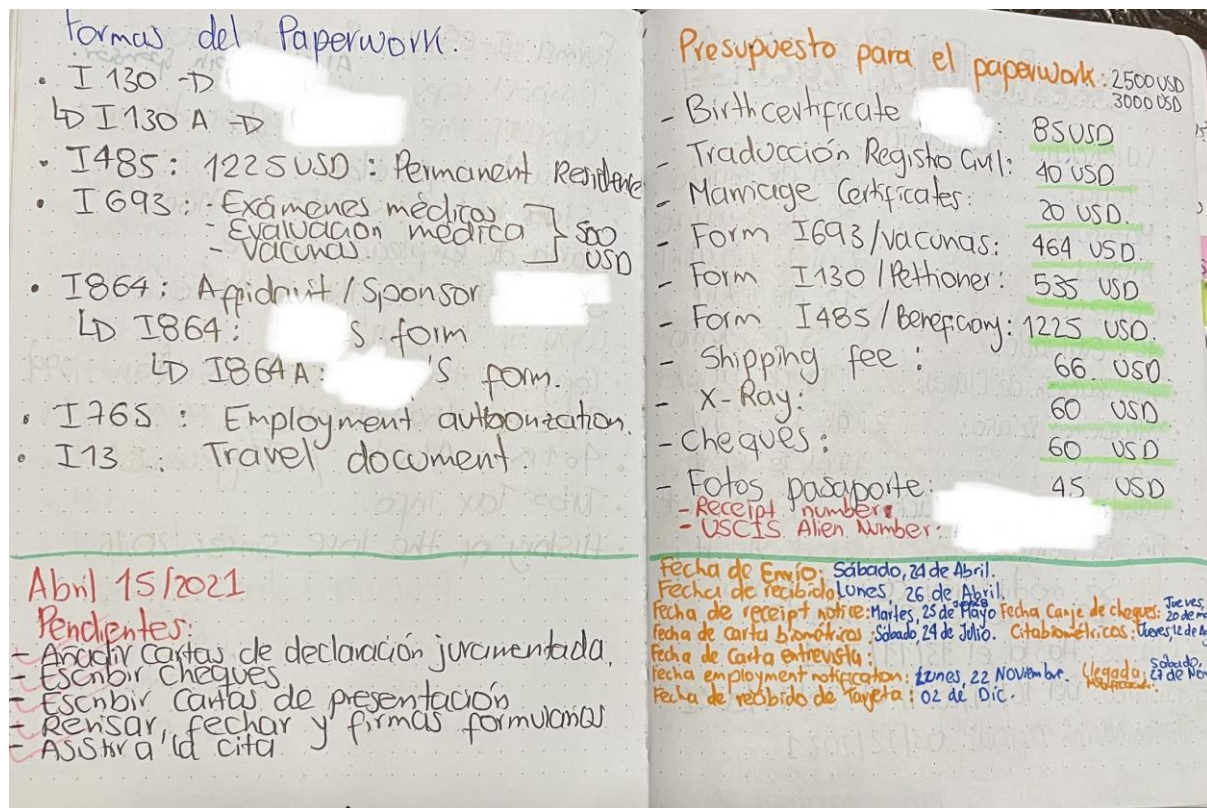 Formas del Paperwork.
• I 130 →
↳ I130 A →
• I485: 1225 USD: Permanent Residence
• I693: - Exámenes médicos
- Evaluación médica } 500
- Vacunas USD
• I864: Affidavit / Sponsor
↳ I864: s form
↳ I864A: 's form.
• I765 : Employment authorization.
• I13 : Travel document.
Abril 15/2021
Pendientes:
- Añadir cartas de declaración juramentada.
- Escribir cheques
- Escribir cartas de presentación
- Revisar, fechar y firmas formularios
- Asistir a la cita
Presupuesto para el paperwork: 2500 USD
3000 USD
- Birth certificate : 85 USD
- Traducción Registro Civil: 40 USD
- Marriage Certificates: 20 USD.
- Form I693/vacunas: 464 USD.
- Form I130/Petitioner: 535 USD
- Form I485/Beneficiary: 1225 USD.
- Shipping fee : 66 USD
- X-Ray: 60 USD
- Cheques: 60 USD
- Fotos pasaporte: 45 USD
- Receipt number:
- USCIS Alien Number:
Fecha de Envío: Sábado, 24 de Abril.
Fecha de recibido Lunes, 26 de Abril.
Fecha de receipt notice: Martes, 25 de Mayo Fecha Canje de cheques: Jueves, 20 de
Fecha de carta biométricas: Sábado 24 de Julio. Cita biométricos: Jueves, 12 de
Fecha de Carta entrevista:
Fecha employment notification: Lunes, 22 Noviembre. Llegada Sábado, 27 de Nov
Fecha de recibido de Tarjeta: 02 de Dic.